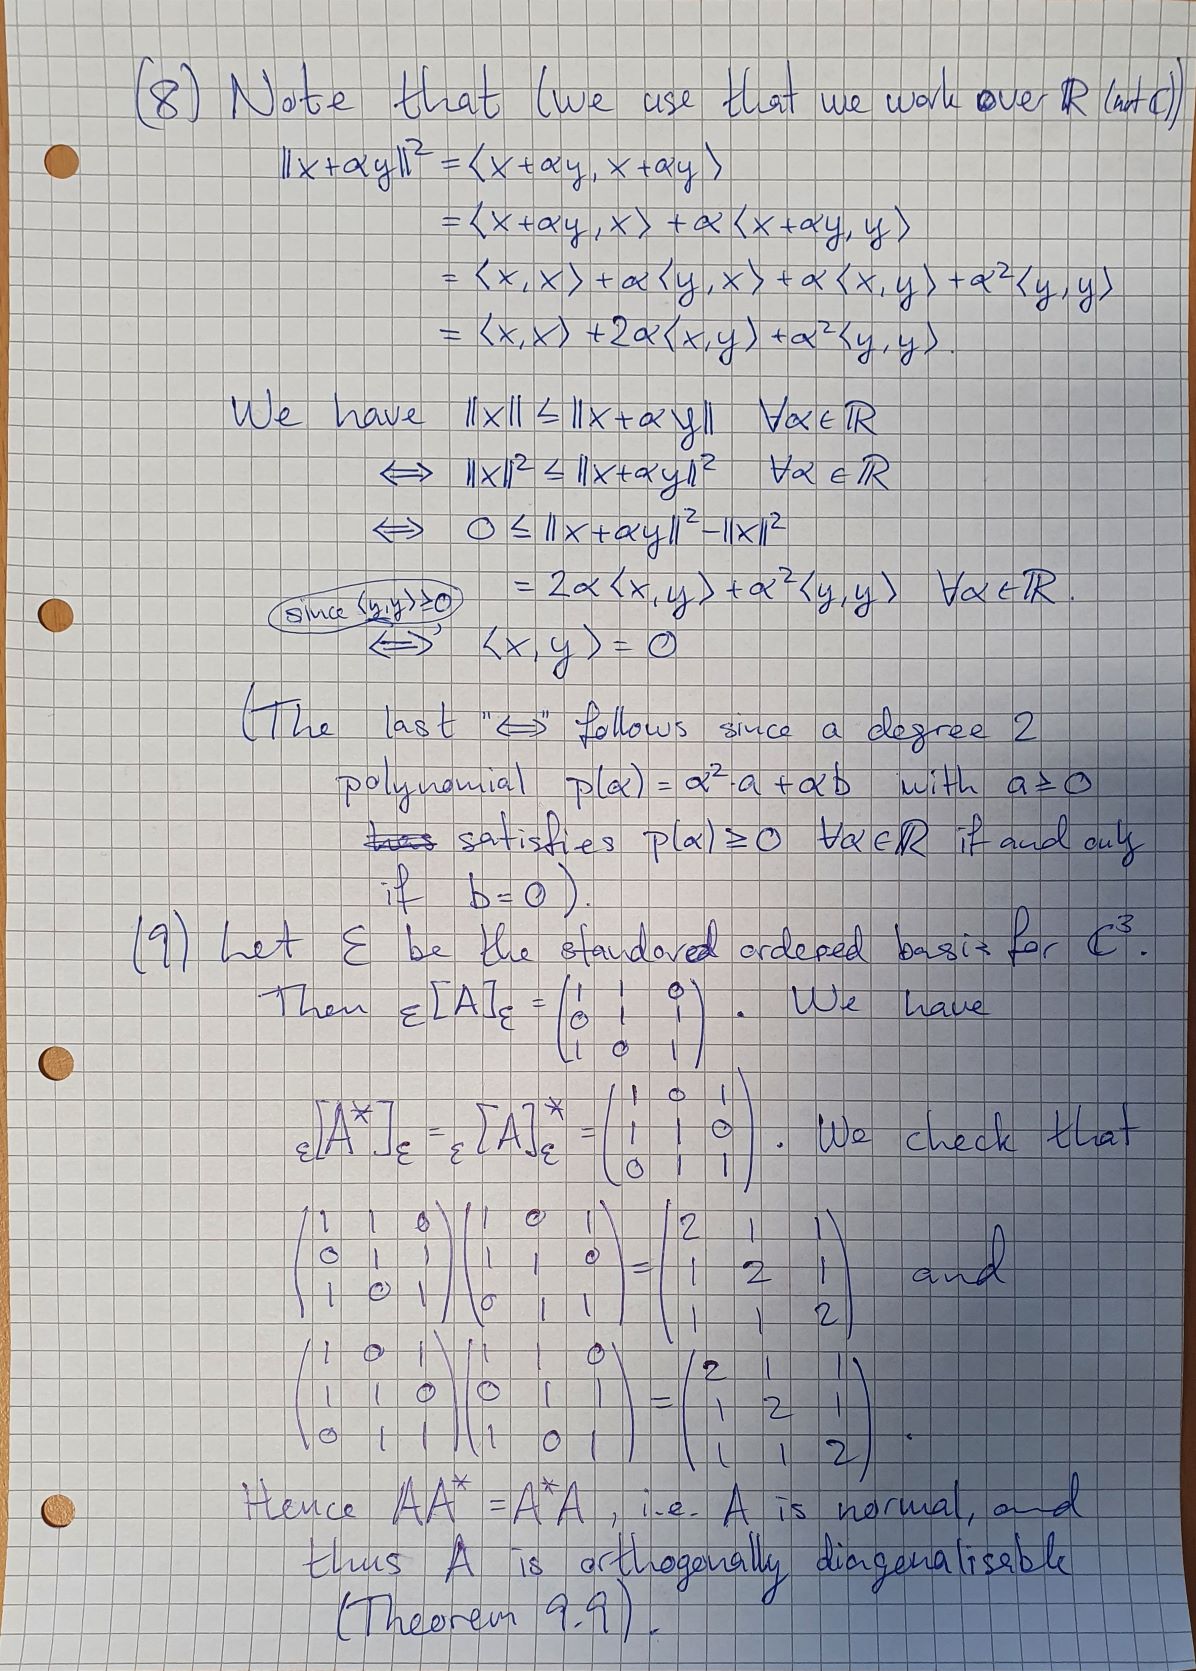 (8) Note that (we use that we work over ℝ (not ℂ))
‖x+αy‖² = ⟨x+αy, x+αy⟩
= ⟨x+αy, x⟩ + α⟨x+αy, y⟩
= ⟨x,x⟩ + α⟨y,x⟩ + α⟨x,y⟩ + α²⟨y,y⟩
= ⟨x,x⟩ + 2α⟨x,y⟩ + α²⟨y,y⟩.
We have ‖x‖ ≤ ‖x+αy‖ ∀α∈ℝ
⟺ ‖x‖² ≤ ‖x+αy‖² ∀α∈ℝ
⟺ 0 ≤ ‖x+αy‖² - ‖x‖²
= 2α⟨x,y⟩ + α²⟨y,y⟩ ∀α∈ℝ.
since ⟨y,y⟩≥0
⟺ ⟨x,y⟩ = 0
(The last "⟺" follows since a degree 2
polynomial p(α) = α²·a + αb with a≥0
satisfies p(α) ≥ 0 ∀α∈ℝ if and only
if b=0).
(9) Let ℰ be the standared ordered basis for ℂ³.
Then ℰ[A]ℰ = (1 1 0
0 1 1
1 0 1). We have
ℰ[A*]ℰ = ℰ[A]ℰ* = (1 0 1
1 1 0
0 1 1). We check that
(1 1 0)(1 0 1) = (2 1 1)
(0 1 1)(1 1 0) = (1 2 1) and
(1 0 1)(0 1 1) = (1 1 2)
(1 0 1)(1 1 0) = (2 1 1)
(1 1 0)(0 1 1) = (1 2 1)
(0 1 1)(1 0 1) = (1 1 2).
Hence AA* = A*A, i.e. A is normal, and
thus A is orthogonally diagonalisable
(Theorem 9.9).